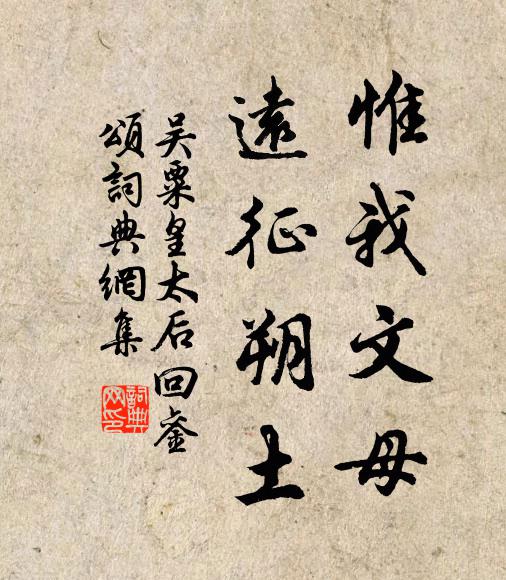 惟我文母
遠征朔土
吴粟皇太后回銮
頌詞典網集
詞典
网印